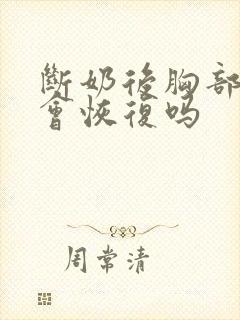 斷奶後胸部
會恢復嗎
周常清